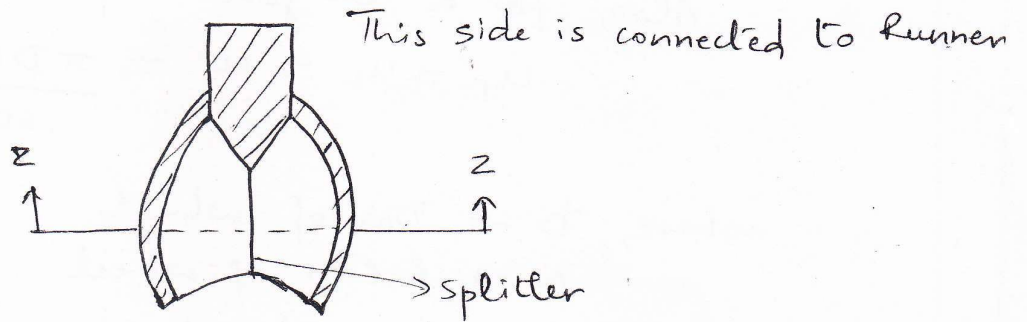 This side is connected to Runner
Z Z
Splitter